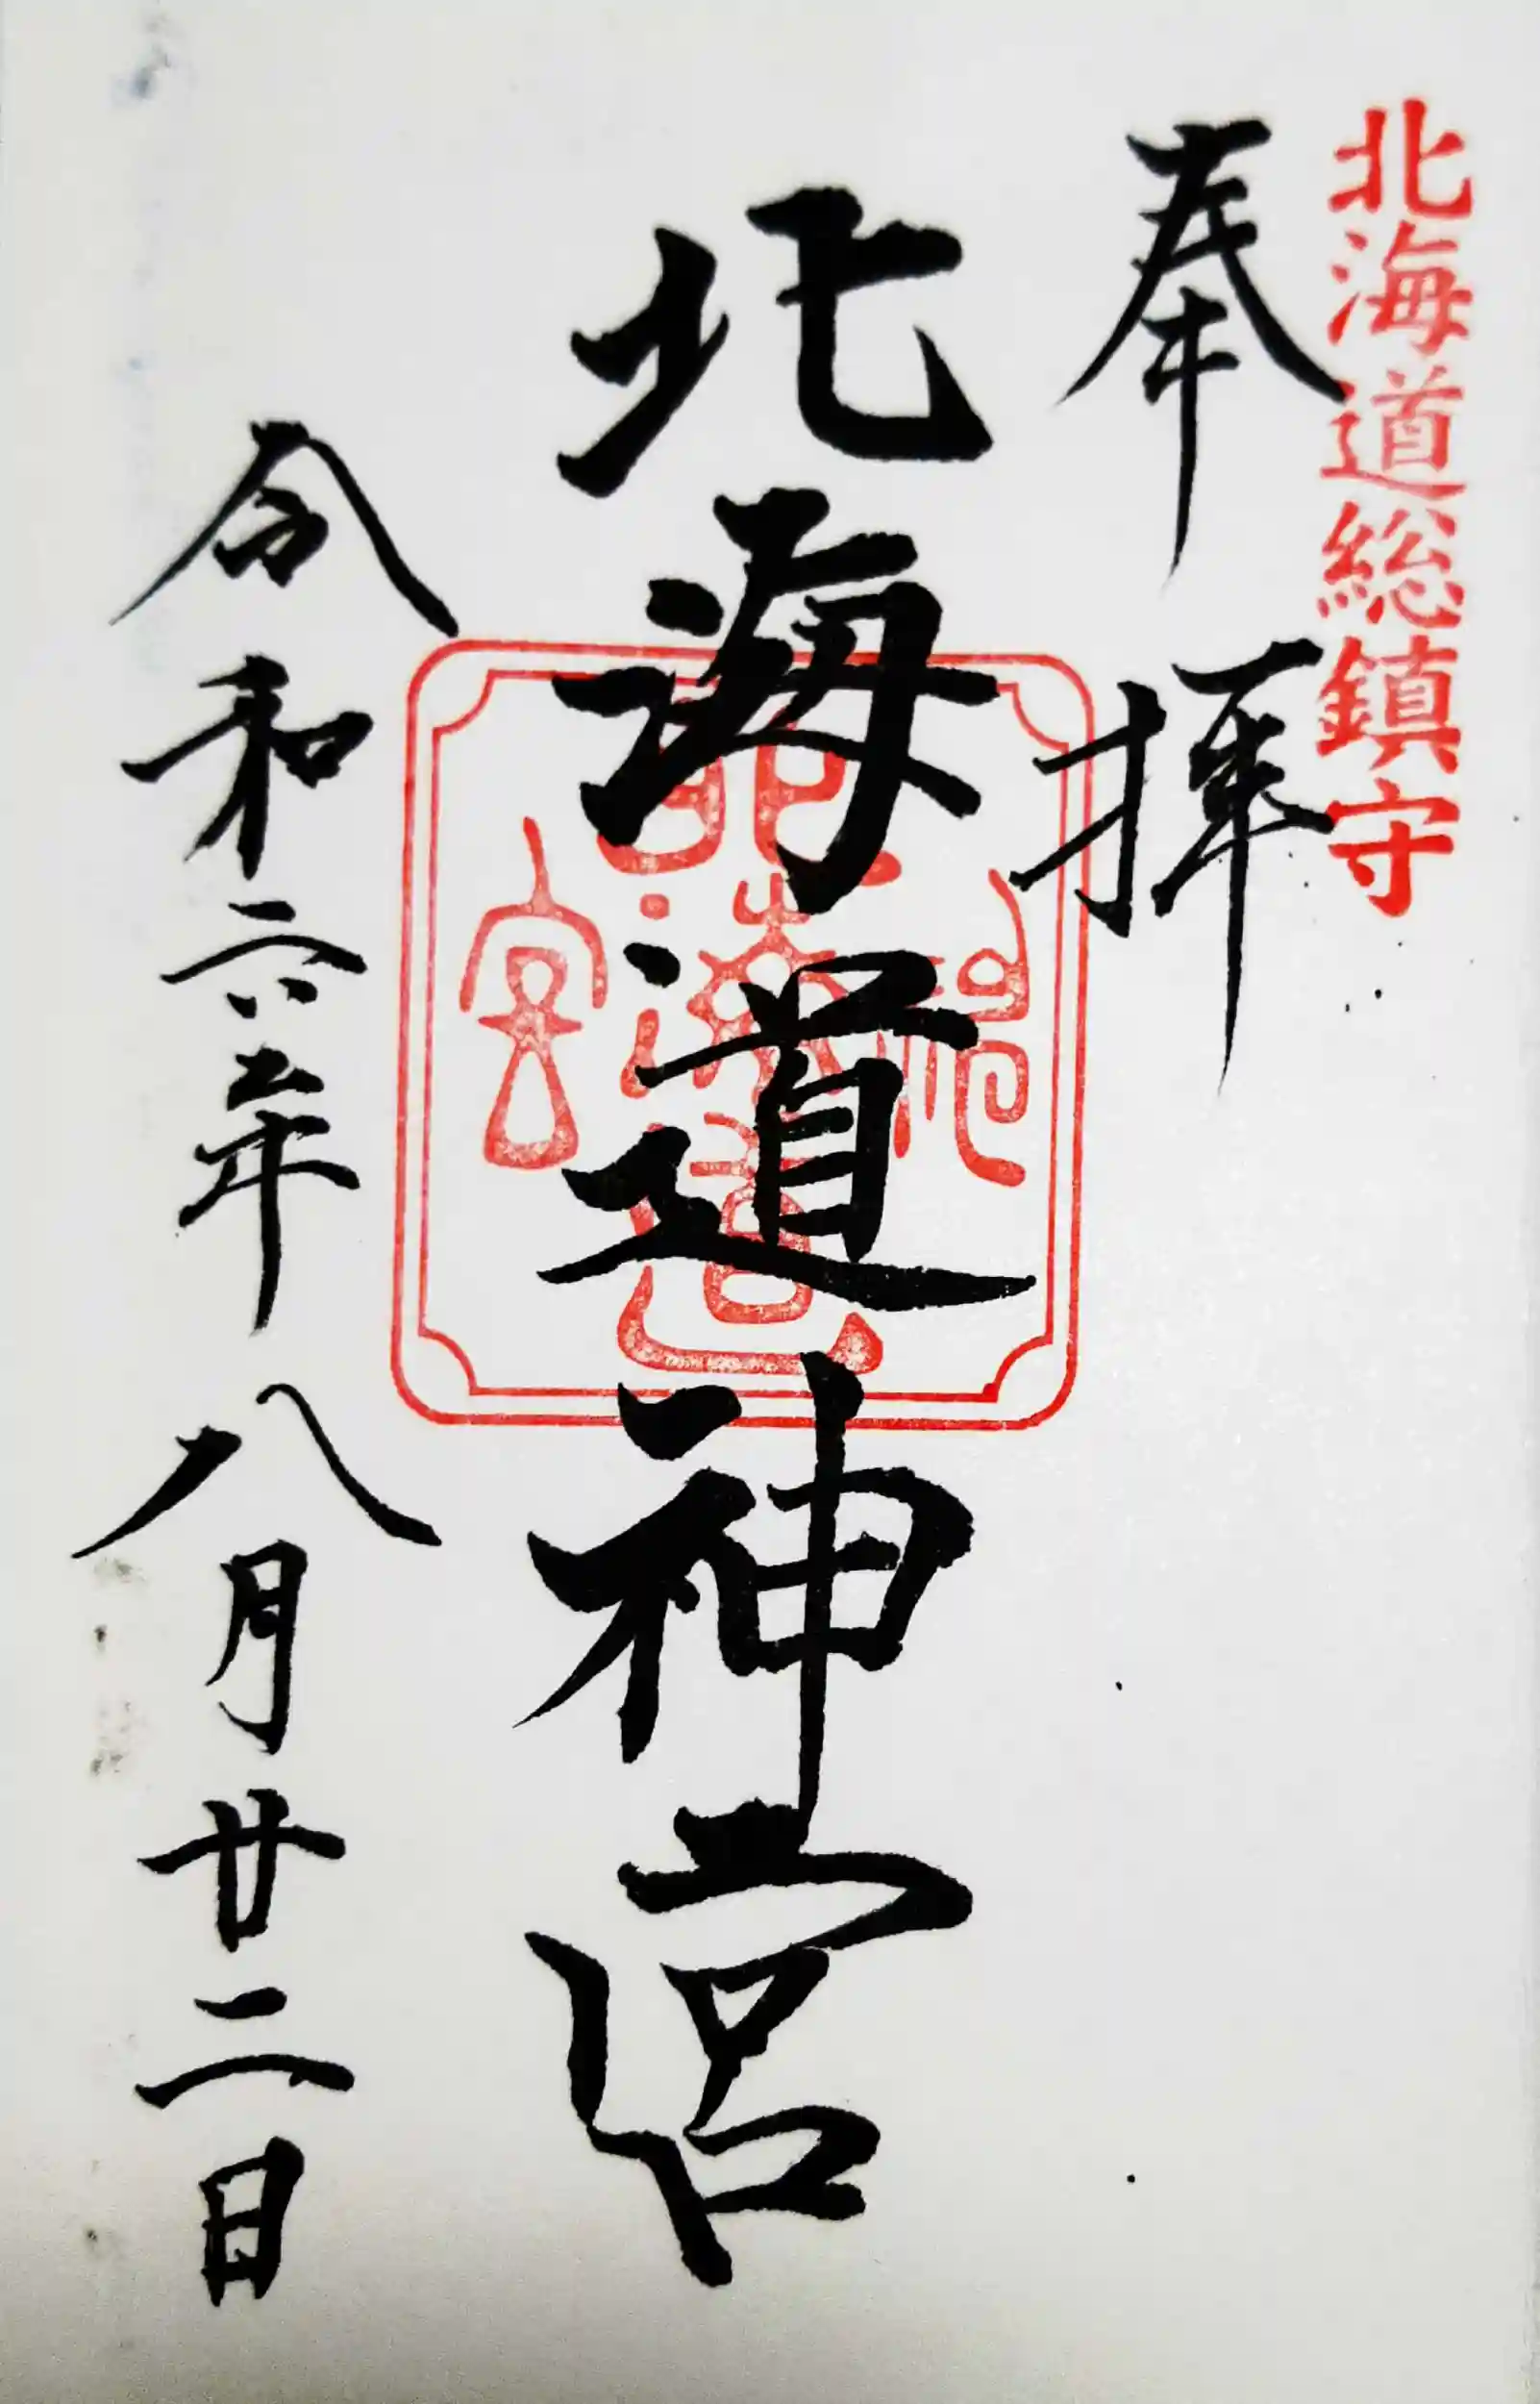 北海道総鎮守
奉拝
北海道神宮
北海道神宮
令和六年八月廿二日